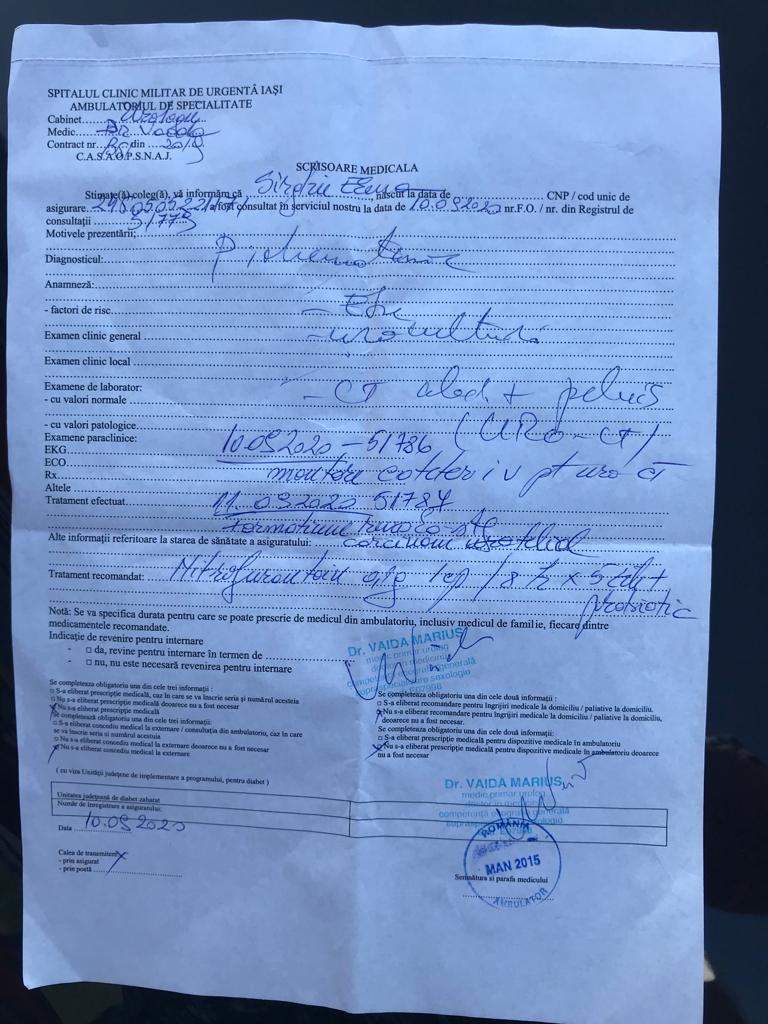 SPITALUL CLINIC MILITAR DE URGENȚĂ IAȘI
AMBULATORIUL DE SPECIALITATE
Cabinet.....Urologie
Medic.....Dr Vaida
Contract nr. din 2019
C.A.S.A.O.P.S.N.A.J.
SCRISOARE MEDICALA
Stimate(ă) coleg(ă), vă informăm că Elena, născut la data de ........ CNP / cod unic de
asigurare a fost consultat în serviciul nostru la data de 10.09.2020 nr.F.O. / nr. din Registrul de
consultații 51773
Motivele prezentării:
Diagnosticul:
Anamneză:
- factori de risc
Examen clinic general - urocultură
Examen clinic local
Examene de laborator: - CT abd + pelvis
- cu valori normale
- cu valori patologice (URO-CT)
Examene paraclinice: 10.09.2020 - 51786
EKG
ECO iv pt uro CT
Rx
Altele 11.09.2020 51787
Tratament efectuat
Alte informații referitoare la starea de sănătate a asiguratului: carcinom urotelial
Tratament recomandat: Nitrofurantoin 1cp / 8 h x 5 zile +
probiotic
Notă: Se va specifica durata pentru care se poate prescrie de medicul din ambulatoriu, inclusiv medicul de familie, fiecare dintre
medicamentele recomandate.
Indicație de revenire pentru internare
- □ da, revine pentru internare în termen de
- □ nu, nu este necesară revenirea pentru internare
Dr. VAIDA MARIUS
medic primar urolog
doctor în medicină
competență ecografie generală
supraspecializare sexologie
E07998
Se completeaza obligatoriu una din cele trei informații :
□ S-a eliberat prescripție medicală, caz în care se va înscrie seria și numărul acesteia
□ Nu s-a eliberat prescripție medicală deoarece nu a fost necesar
Nu s-a eliberat prescripție medicală
Se completează obligatoriu una din cele trei informații:
□ S-a eliberat concediu medical la externare / consultația din ambulatoriu, caz în care
se va înscrie seria și numărul acestuia
□ Nu s-a eliberat concediu medical la externare deoarece nu a fost necesar
Nu s-a eliberat concediu medical la externare
Se completeaza obligatoriu una din cele două informații :
□ S-a eliberat recomandare pentru îngrijiri medicale la domiciliu / paliative la domiciliu.
Nu s-a eliberat recomandare pentru îngrijiri medicale la domiciliu / paliative la domiciliu,
deoarece nu a fost necesar.
Se completeaza obligatoriu una din cele două informații:
□ S-a eliberat prescripție medicală pentru dispozitive medicale în ambulatoriu
Nu s-a eliberat prescripție medicală pentru dispozitive medicale în ambulatoriu deoarece
nu a fost necesar
( cu viza Unității județene de implementare a programului, pentru diabet )
Unitatea județeană de diabet zaharat
Număr de înregistrare a asiguratului:
Data 10.09.2020
Dr. VAIDA MARIUS
medic primar urolog
doctor în medicină
competență ecografie generală
supraspecializare sexologie
Calea de transmitere
- prin asigurat
- prin poștă
ROMÂNIA
MAN 2015
AMBULATOR
Semnătura si parafa medicului